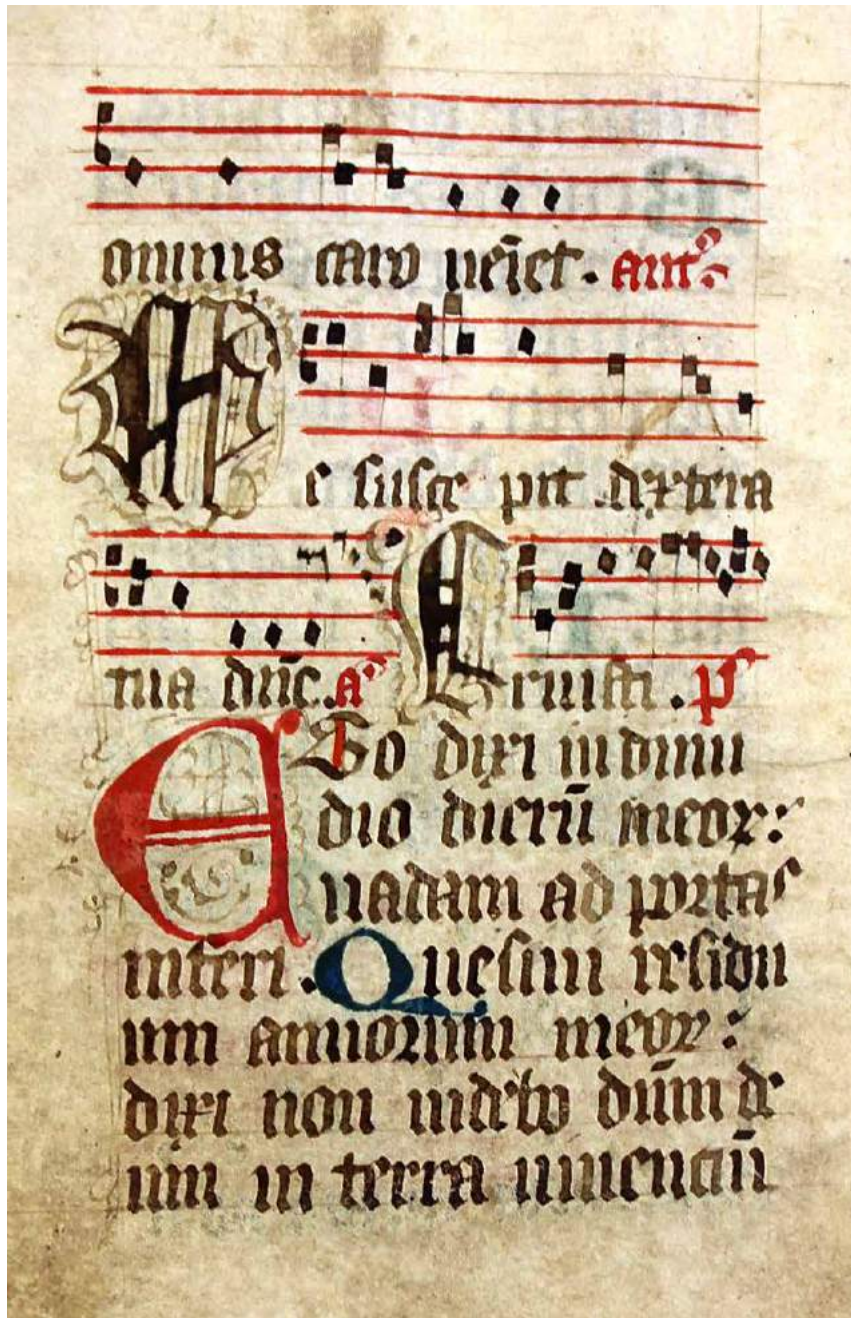 omnis caro uēiet. ant̄
Me susce pit dextera
tua dn̄e. a Eruisti. p̄
Ego dixi in dimi
dio dierū meoꝝ:
uadam ad portas
inferi. Quesiui residu
um annorum meoꝝ:
dixi non uidebo dūm de
um in terra uiuenciū